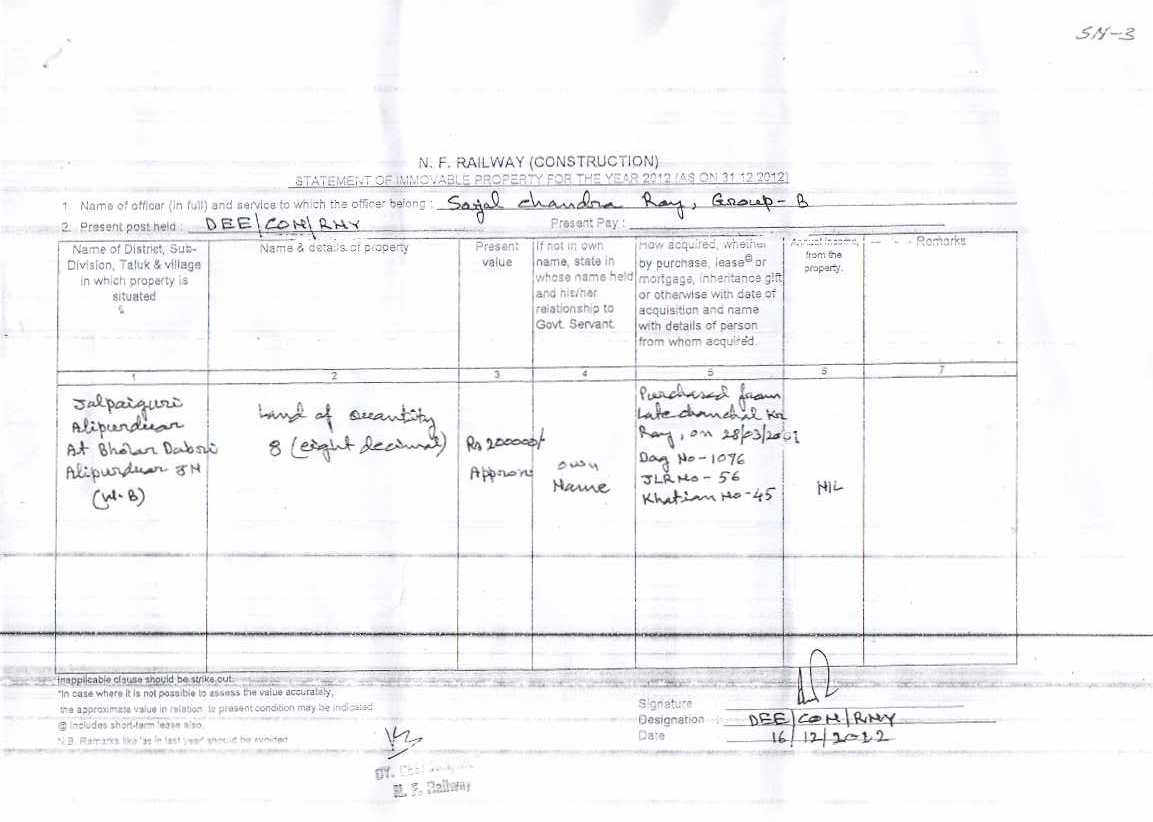 SN-3
N. F. RAILWAY (CONSTRUCTION)
STATEMENT OF IMMOVABLE PROPERTY FOR THE YEAR 2012 (AS ON 31.12.2012)
1 Name of officer (in full) and service to which the officer belong : Sajal Chandra Ray, Group-B
2. Present post held : DEE/CON/RNY Present Pay :
Name of District, Sub-
Division, Taluk & village
in which property is
situated
Name & details of property
Present
value
If not in own
name, state in
whose name held
and his/her
relationship to
Govt. Servant.
How acquired, whether
by purchase, lease@ or
mortgage, inheritance gift
or otherwise with date of
acquisition and name
with details of person
from whom acquired.
Annual income
from the
property.
Remarks
1 2 3 4 5 6 7
Jalpaiguri
Alipurduar
At Bholar Dabri
Alipurduar JN
(W.B)
Land of quantity
8 (eight decimal)
Rs 200000/-
Approx
own
Name
Purchased from
Late chanchal Kr
Ray, on 28/03/2001
Dag No-1076
JLR No-56
Khatian No-45
NIL
Inapplicable clause should be strike out.
*In case where it is not possible to assess the value accurately,
the approximate value in relation to present condition may be indicated
@ Includes short-term lease also.
N.B. Remarks like 'as in last year' should be avoided
Signature
Designation : DEE/CON/RNY
Date 16/12/2012
DY.
N. F. Railway